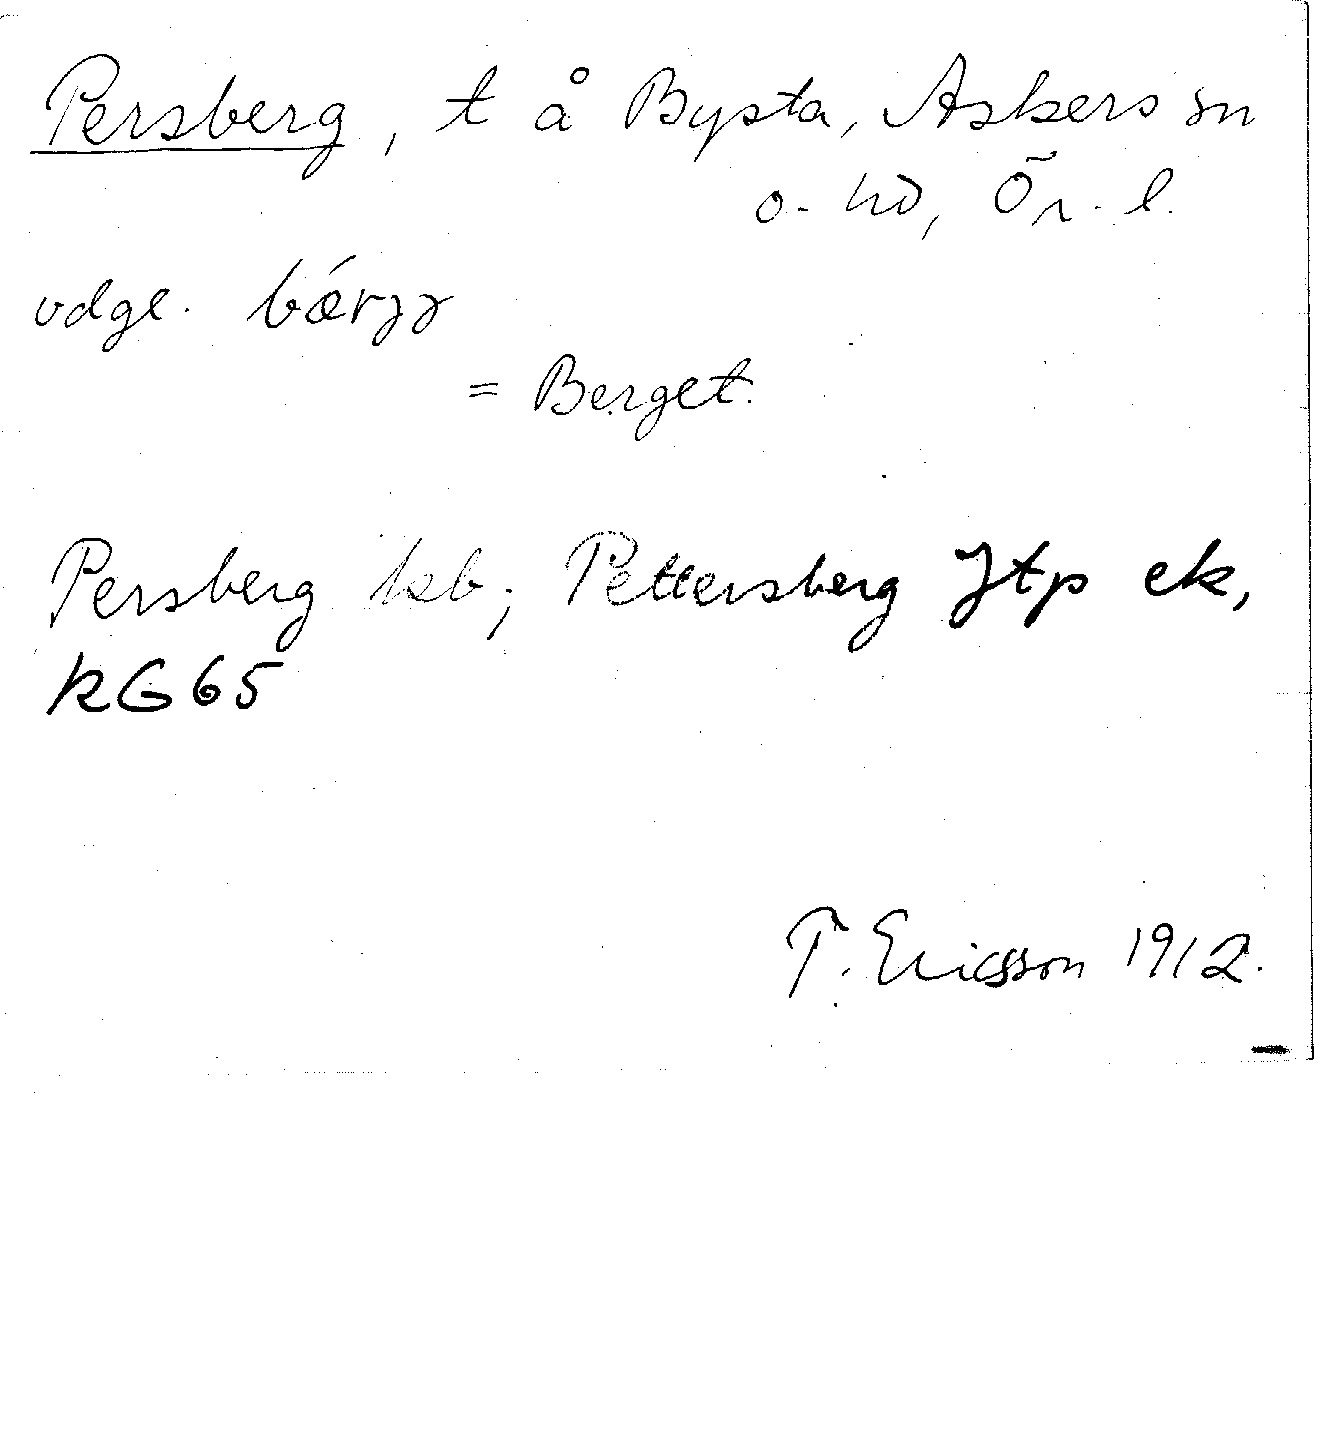 Persberg, t å Bysta, Askers sn
o. hd, Ör. l.
vdgl.
= Berget.
Persberg kb; Pettersberg Jtp ek,
kG65
T. Ericsson 1912.